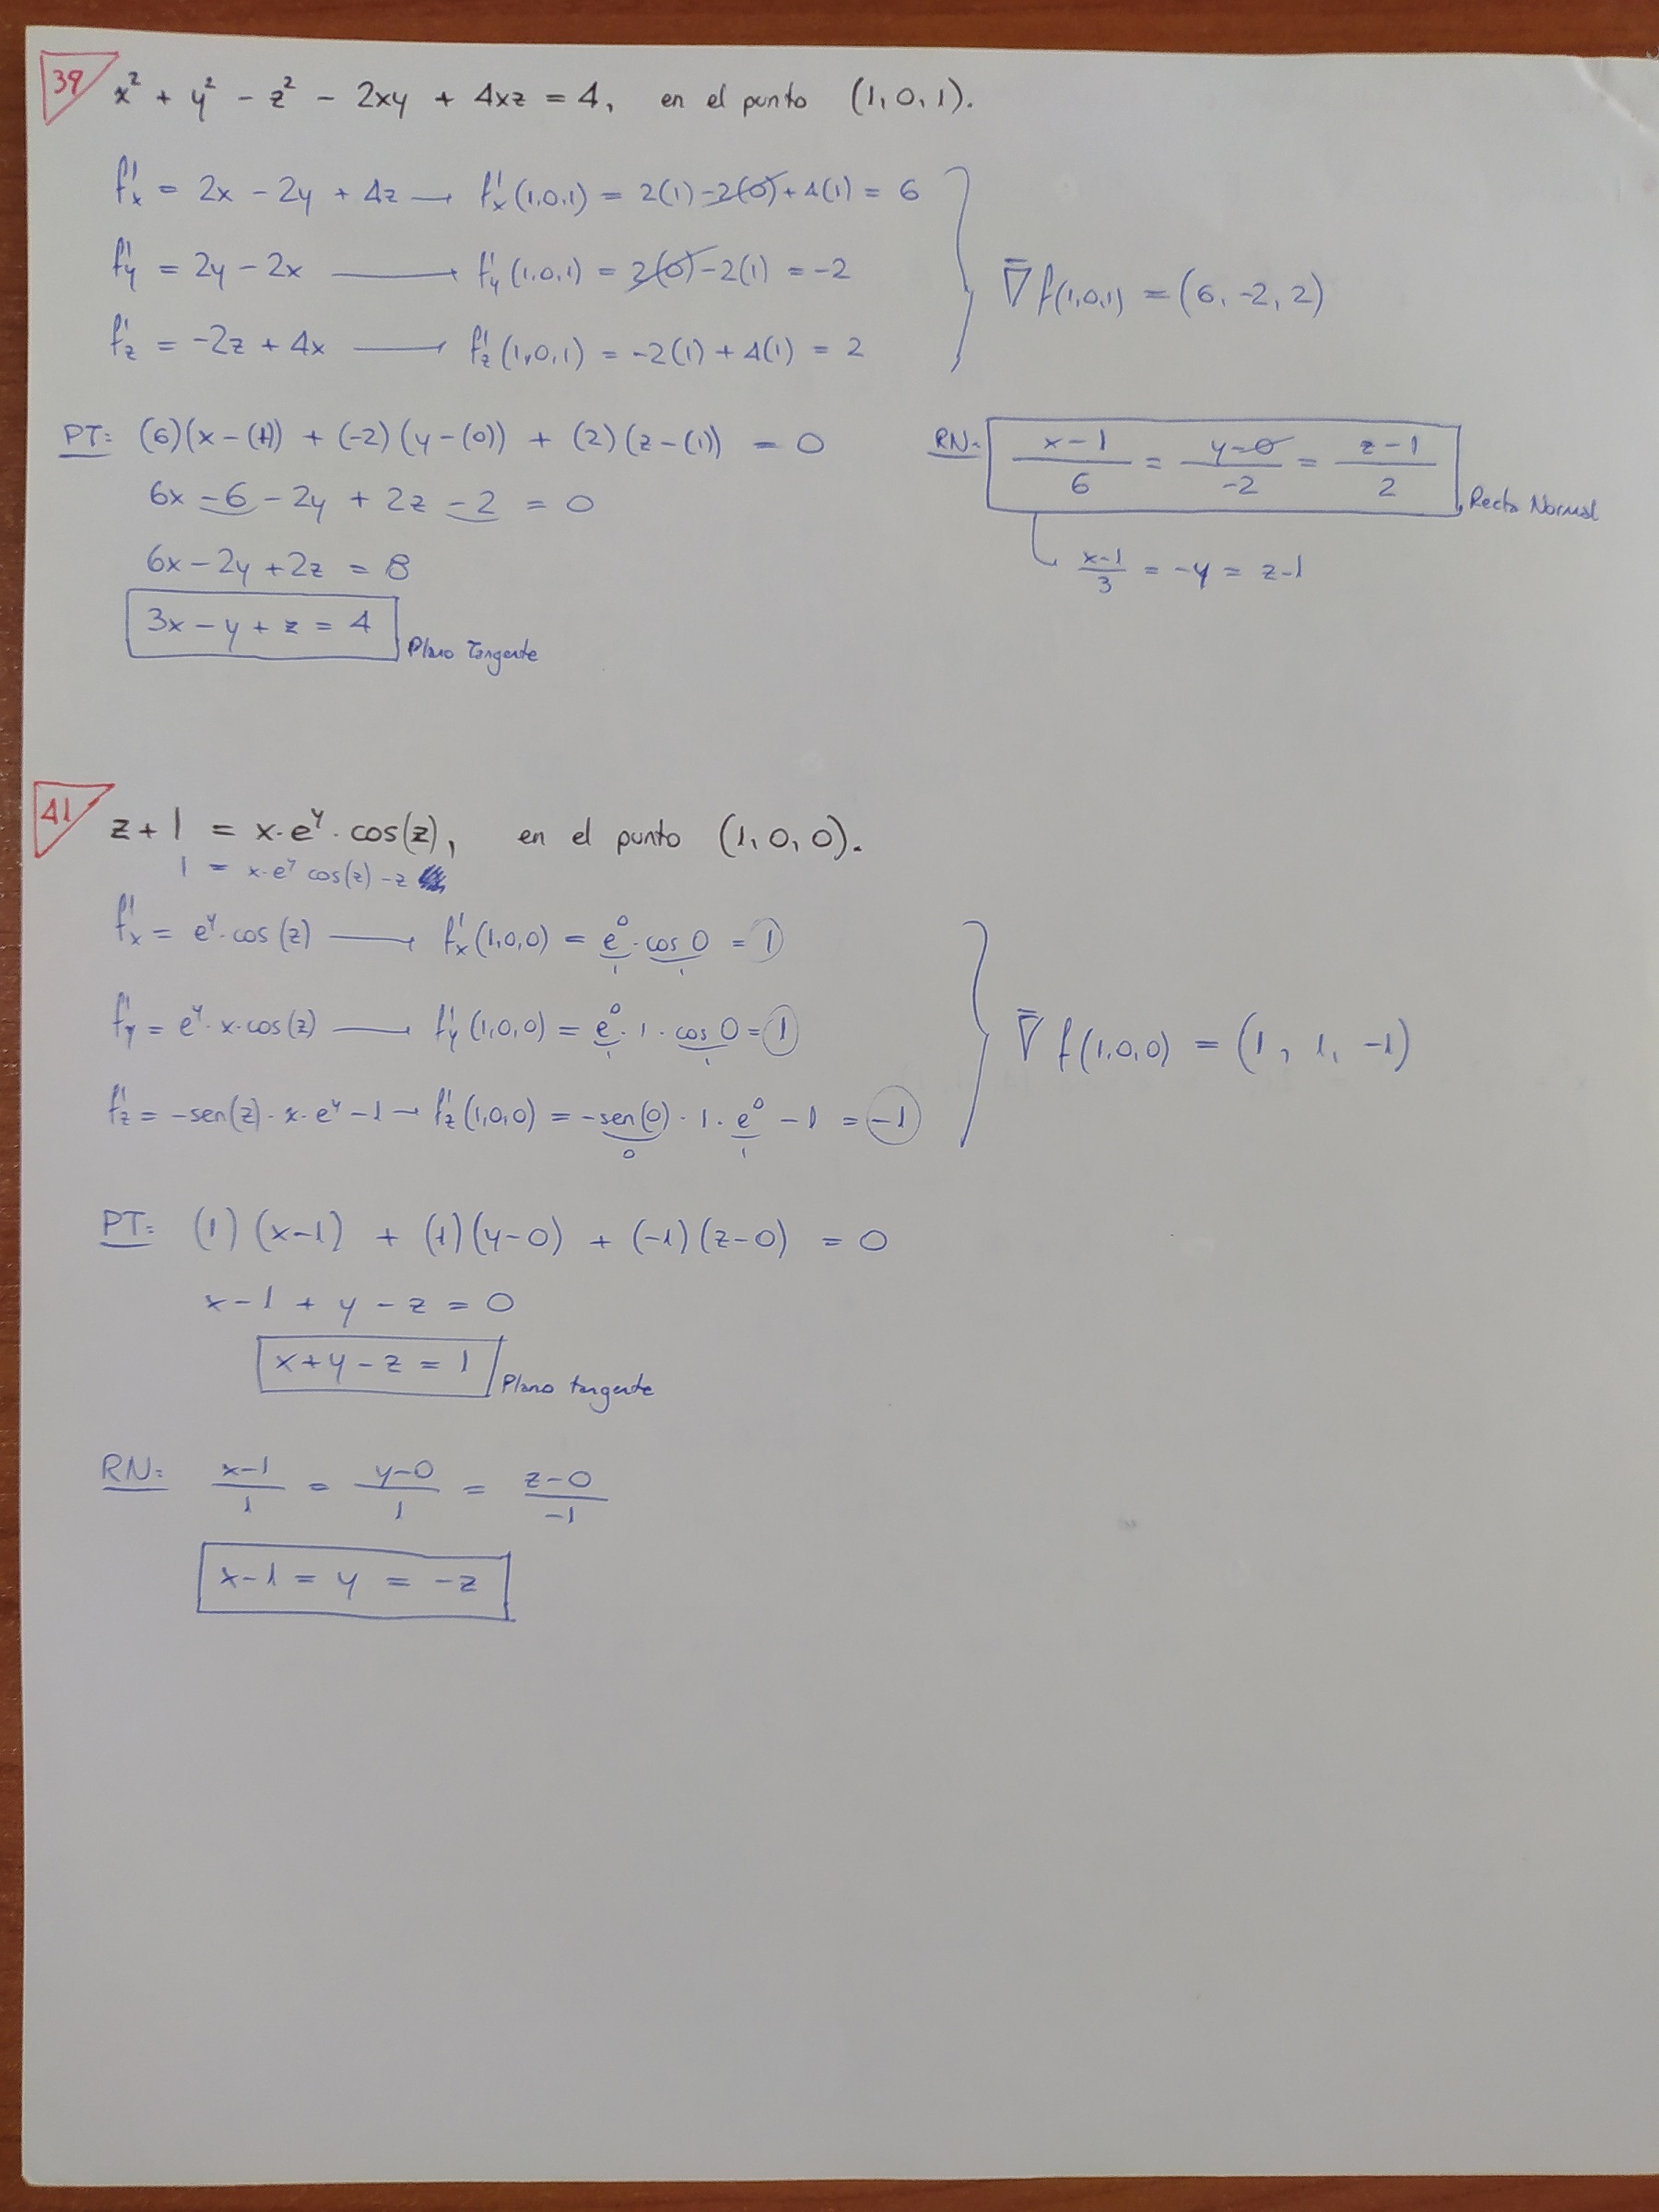 39 x² + y² - z² - 2xy + 4xz = 4, en el punto (1, 0, 1).
f'x = 2x - 2y + 4z → f'x (1,0,1) = 2(1) - 2(0) + 4(1) = 6
f'y = 2y - 2x → f'y (1,0,1) = 2(0) - 2(1) = -2
f'z = -2z + 4x → f'z (1,0,1) = -2(1) + 4(1) = 2
∇f(1,0,1) = (6, -2, 2)
PT: (6)(x-(1)) + (-2)(y-(0)) + (2)(z-(1)) = 0
6x - 6 - 2y + 2z - 2 = 0
6x - 2y + 2z = 8
3x - y + z = 4 Plano Tangente
RN: (x-1)/6 = (y-0)/-2 = (z-1)/2 Recta Normal
(x-1)/3 = -y = z-1
41 z + 1 = x·e^y·cos(z), en el punto (1, 0, 0).
1 = x·e^y cos(z) - z
f'x = e^y·cos(z) → f'x (1,0,0) = e^0 · cos 0 = 1
1 1
f'y = e^y·x·cos(z) → f'y (1,0,0) = e^0 · 1 · cos 0 = 1
1 1
f'z = -sen(z)·x·e^y - 1 → f'z (1,0,0) = -sen(0) · 1 · e^0 - 1 = -1
0 1
∇f(1,0,0) = (1, 1, -1)
PT: (1)(x-1) + (1)(y-0) + (-1)(z-0) = 0
x - 1 + y - z = 0
x + y - z = 1 Plano tangente
RN: (x-1)/1 = (y-0)/1 = (z-0)/-1
x-1 = y = -z